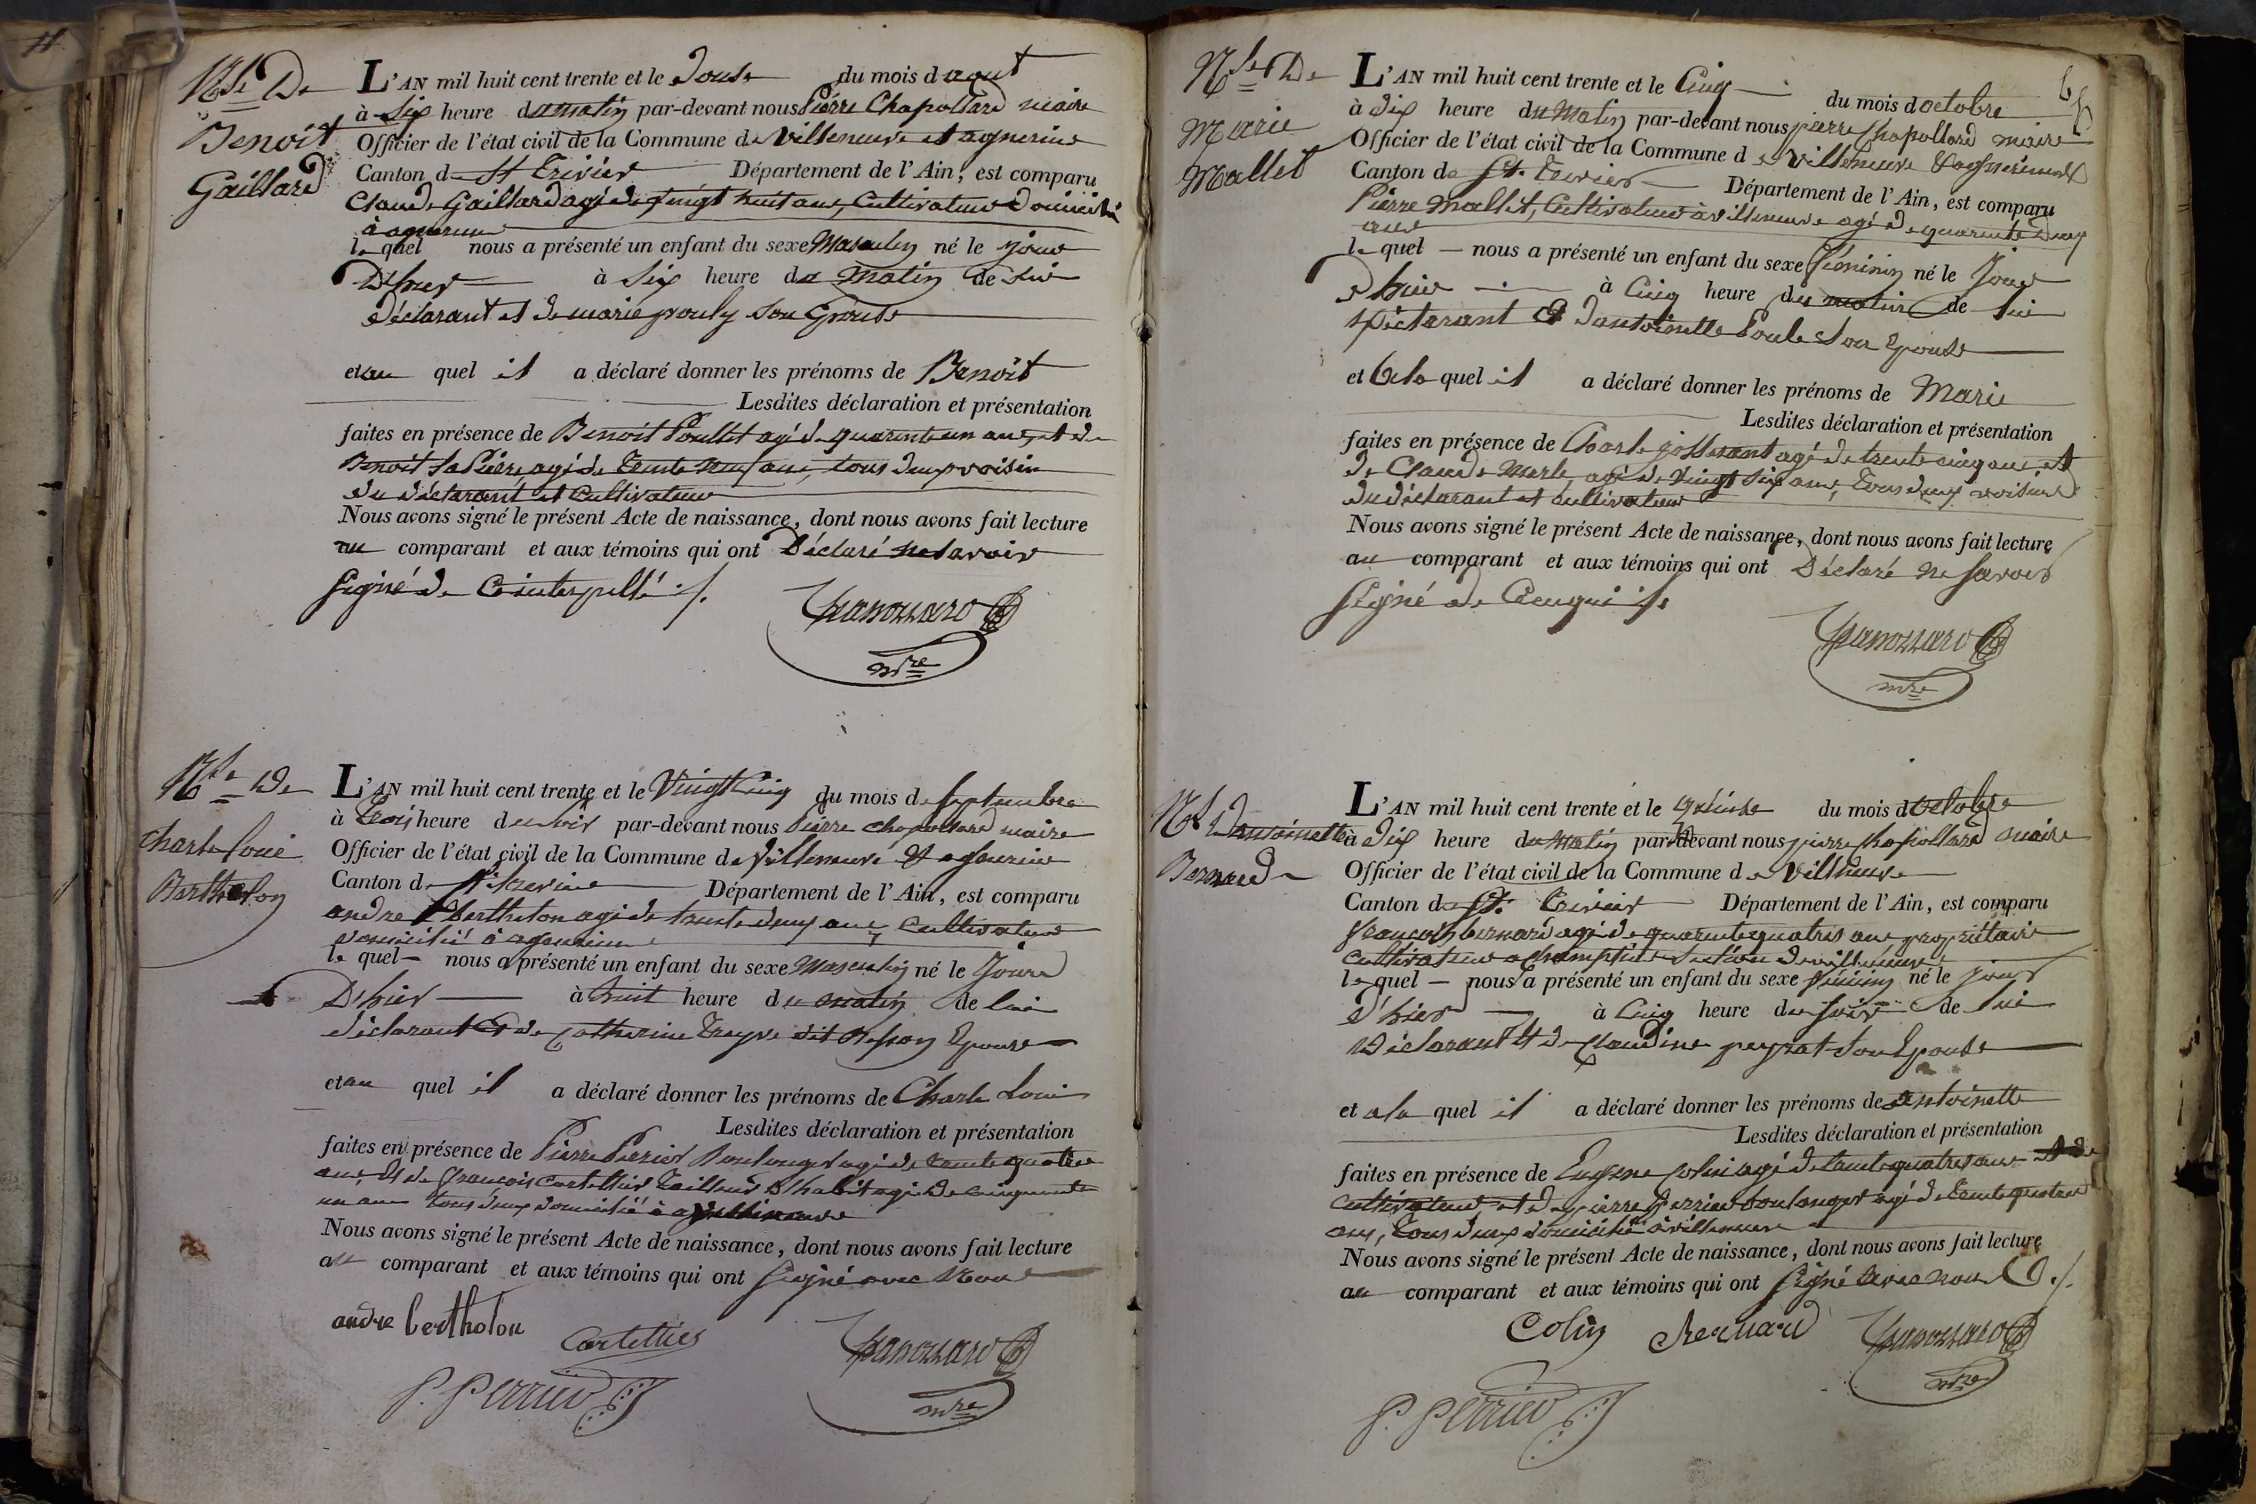 11
Nce De
Benoit
Gaillard
L'AN mil huit cent trente et le Douse du mois d'aout
à Six heure du matin par-devant nous Pierre Chapollard maire
Officier de l'état civil de la Commune de Villeneuve et agnerine
Canton de St Trivier Département de l'Ain, est comparu
Claude Gaillard agé de vingt huit ans, Cultivateur Domicilié
à agnerine
le quel nous a présenté un enfant du sexe Masculin né le jour
D'hier à Six heure du Matin de lui
Déclarant et de marie prouly son Epouse
et au quel il a déclaré donner les prénoms de Benoit
Lesdites déclaration et présentation
faites en présence de Benoit Poullet agé de quarente un ans, et de
Benoit agé de Trente neuf ans, tous deux voisin
du déclarant et Cultivateur
Nous avons signé le présent Acte de naissance, dont nous avons fait lecture
au comparant et aux témoins qui ont Déclaré ne Savoir
Signé de Ce interpellé ./.
Chapollard
mre
Nce De
Charle Loui
Bertholon
L'AN mil huit cent trente et le Vingt Cinq du mois de Septembre
à Trois heure du Soir par-devant nous Pierre chapollard maire
Officier de l'état civil de la Commune de Villeneuve et agnerine
Canton de St Trivier Département de l'Ain, est comparu
andre Bertholon agé de trente deux ans Cultivateur
domicilié à agnerine
le quel nous a présenté un enfant du sexe Masculin né le Jour
D'hier à huit heure du matin de lui
déclarant et de Catherine Treyve dit Epouse
et au quel il a déclaré donner les prénoms de Charle Loui
Lesdites déclaration et présentation
faites en présence de Pierre Perier Boulanger agé de trente quatre
ans, et de François Cartellier Tailleur D'habit agé de cinquante
un ans tous deux domicilié à Villeneuve
Nous avons signé le présent Acte de naissance, dont nous avons fait lecture
au comparant et aux témoins qui ont Signé avec Nous
andre bertholon
Cartellier
Chapollard
P. Perrier
mre
Nce De
Marie
Mallet
L'AN mil huit cent trente et le Cinq du mois d'octobre
à Dix heure du Matin par-devant nous pierre Chapollard maire
Officier de l'état civil de la Commune de Villeneuve & agnerine
Canton de St. Trivier Département de l'Ain, est comparu
Pierre Mallet, Cultivateur à villeneuve agé de quarente Deux
ans
le quel nous a présenté un enfant du sexe féminin né le Jour
d'hier à Cinq heure du matin de lui
Déclarant et d'antoinette Poule Son Epouse
et a la quel il a déclaré donner les prénoms de Marie
Lesdites déclaration et présentation
faites en présence de Charle josserant agé de trente cinq ans et
de Claude Merle, agé de vingt Six ans, tous deux voisins
du déclarant et cultivateur
Nous avons signé le présent Acte de naissance, dont nous avons fait lecture
au comparant et aux témoins qui ont Déclaré ne Savoir
Signé de Ce enquis ./.
Chapollard
mre
Nce D'antoinette
Bernard
L'AN mil huit cent trente et le quinse du mois d'octobre
à Dix heure du Matin par-devant nous pierre Chapollard maire
Officier de l'état civil de la Commune de Villeneuve
Canton de St. Trivier Département de l'Ain, est comparu
François bernard agé de quarente quatre ans propriétaire
cultivateur a section de villeneuve
le quel nous a présenté un enfant du sexe féminin né le jour
d'hier à Cinq heure du Soir de lui
Déclarant et de Claudine peyrat Son Epouse
et a la quel il a déclaré donner les prénoms de antoinette
Lesdites déclaration et présentation
faites en présence de Eugene Colin agé de trente quatre ans et de
cultivateur, et de pierre Perrier boulanger agé de trente quatre
ans, tous deux domicilié à villeneuve
Nous avons signé le présent Acte de naissance, dont nous avons fait lecture
au comparant et aux témoins qui ont Signé avec nous ./.
Colin Bernard Chapollard
P. Perrier
mre